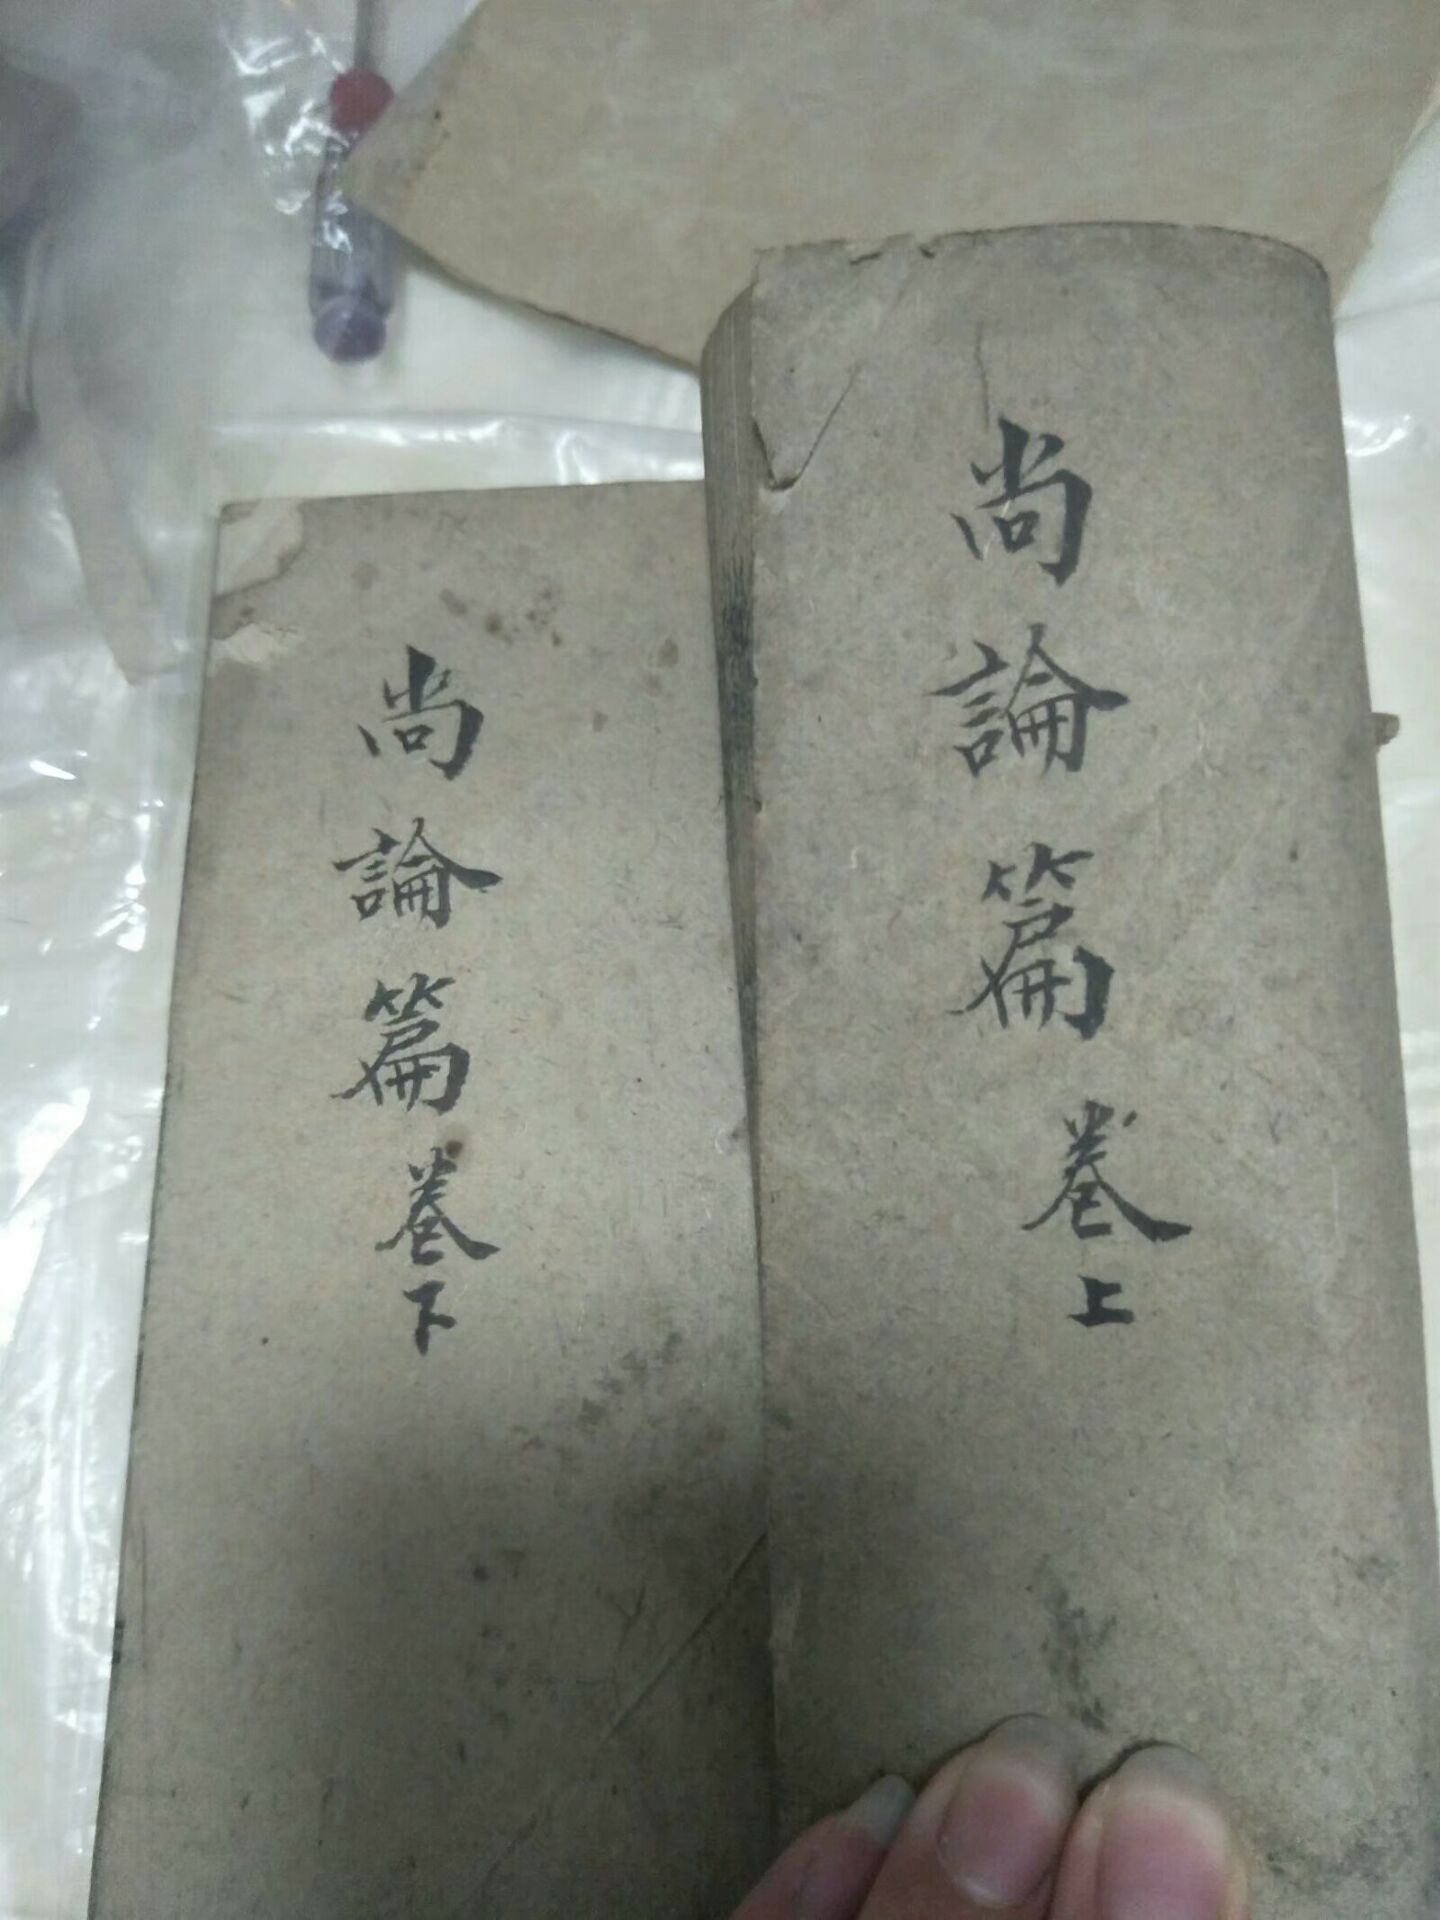 尚論篇卷上
尚論篇卷下